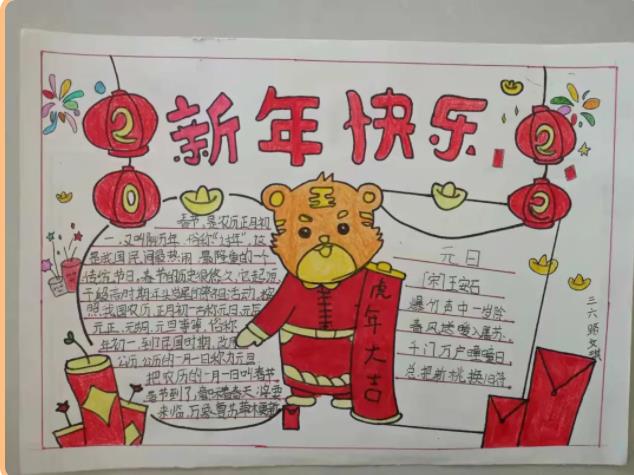 新年快乐
2
0
2
2
春节,是农历正月初
一,又叫阴历年,俗称“过年”,这
是我国民间最热闹、最隆重的一个
传统节日。春节的历史很悠久,它起源
于殷商时期年头岁尾的祭祀活动,按
照我国农历,正月初一古称元日、元辰
元正、元朔、元旦等,俗称
年初一,到了民国时期,改用
公历,公历的一月一日称为元旦,
把农历的一月一日叫春节
春节到了,意味着春天
来临,万象复苏草木更新
虎年大吉
元日
[宋]王安石
爆竹声中一岁除
春风送暖入屠苏
千门万户曈曈日
总把新桃换旧符
三六